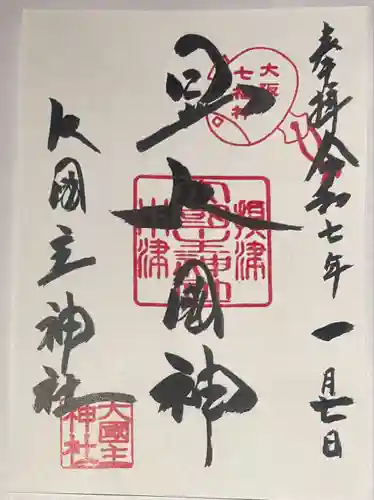 奉拝 令和七年 一月七日
大阪
七福神
日出大國神
大國主神社
大國主
神社